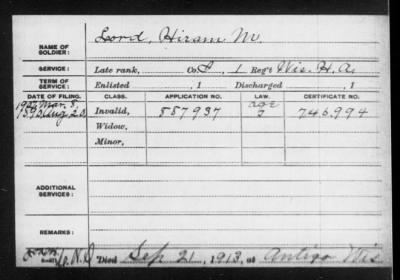 NAME OF SOLDIER: Lord, Hiram M.
SERVICE: Late rank, Co. 1 Reg't Wis. H. A.
TERM OF SERVICE: Enlisted , 1 Discharged , 1
DATE OF FILING. CLASS. APPLICATION NO. LAW. CERTIFICATE NO.
1907 Mar. 8. age
Aug 23 Invalid, 887937 2 746.994
Widow,
Minor,
ADDITIONAL SERVICES:
REMARKS:
Died Sep 21, 1913, at Antigo Wis